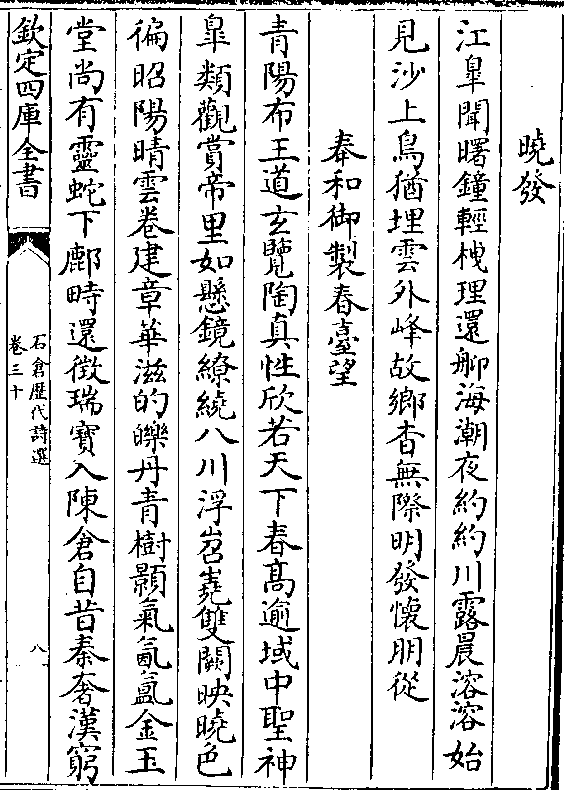 曉發
江臯聞曙鐘輕栧理還舼海潮夜約約川露晨溶溶始
見沙上鳥猶埋雲外峰故鄉杳無際明發懷朋從
奉和御製春臺望
青陽布王道玄覽陶真性欣若天下春髙逾域中聖神
臯類觀賞帝里如懸鏡繚繞八川浮岧嶤雙闕映曉色
徧昭陽晴雲卷建章華滋的皪丹青樹顥氣氤氲金玉
堂尚有靈蛇下鄜畤還徴瑞寳入陳倉自昔秦奢漢窮
欽定四庫全書
石倉歴代詩選
卷三十
八